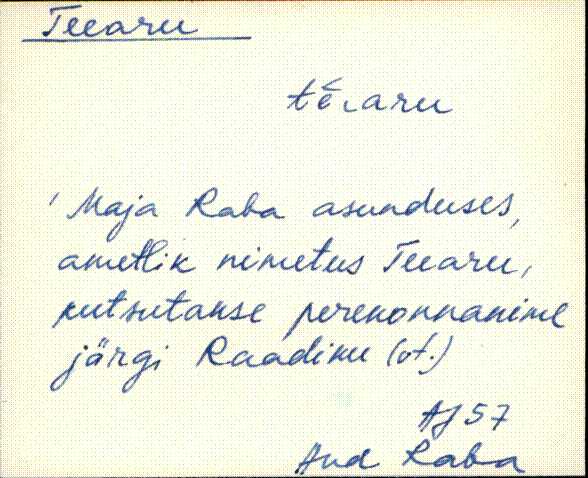 Teearu
tē͔aru
' Maja Raba asunduses,
ametlik nimetus Teearu,
kutsutakse perekonnanime
järgi Raadiku (vt.)
AJ 57
And Raba